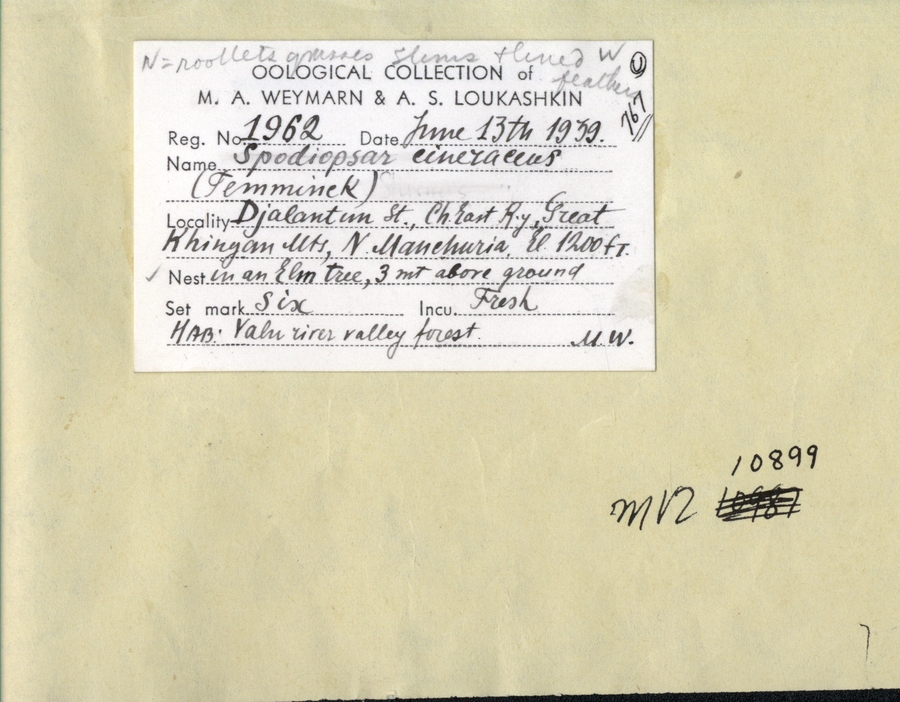 N = rootlets grasses stems & lined W
feathers
OOLOGICAL COLLECTION of
M. A. WEYMARN & A. S. LOUKASHKIN
767
Reg. No. 1962 Date June 13th 1939.
Name Spodiopsar cineraceus
(Temminck)
Locality Djalantun St., Ch. East R.y, Great
Khingan Mts, N. Manchuria. El. 1200 ft.
✓ Nest in an Elm tree, 3 mt above ground
Set mark Six Incu. Fresh
HAB: Yalu river valley forest. M.W.
10899
MVZ